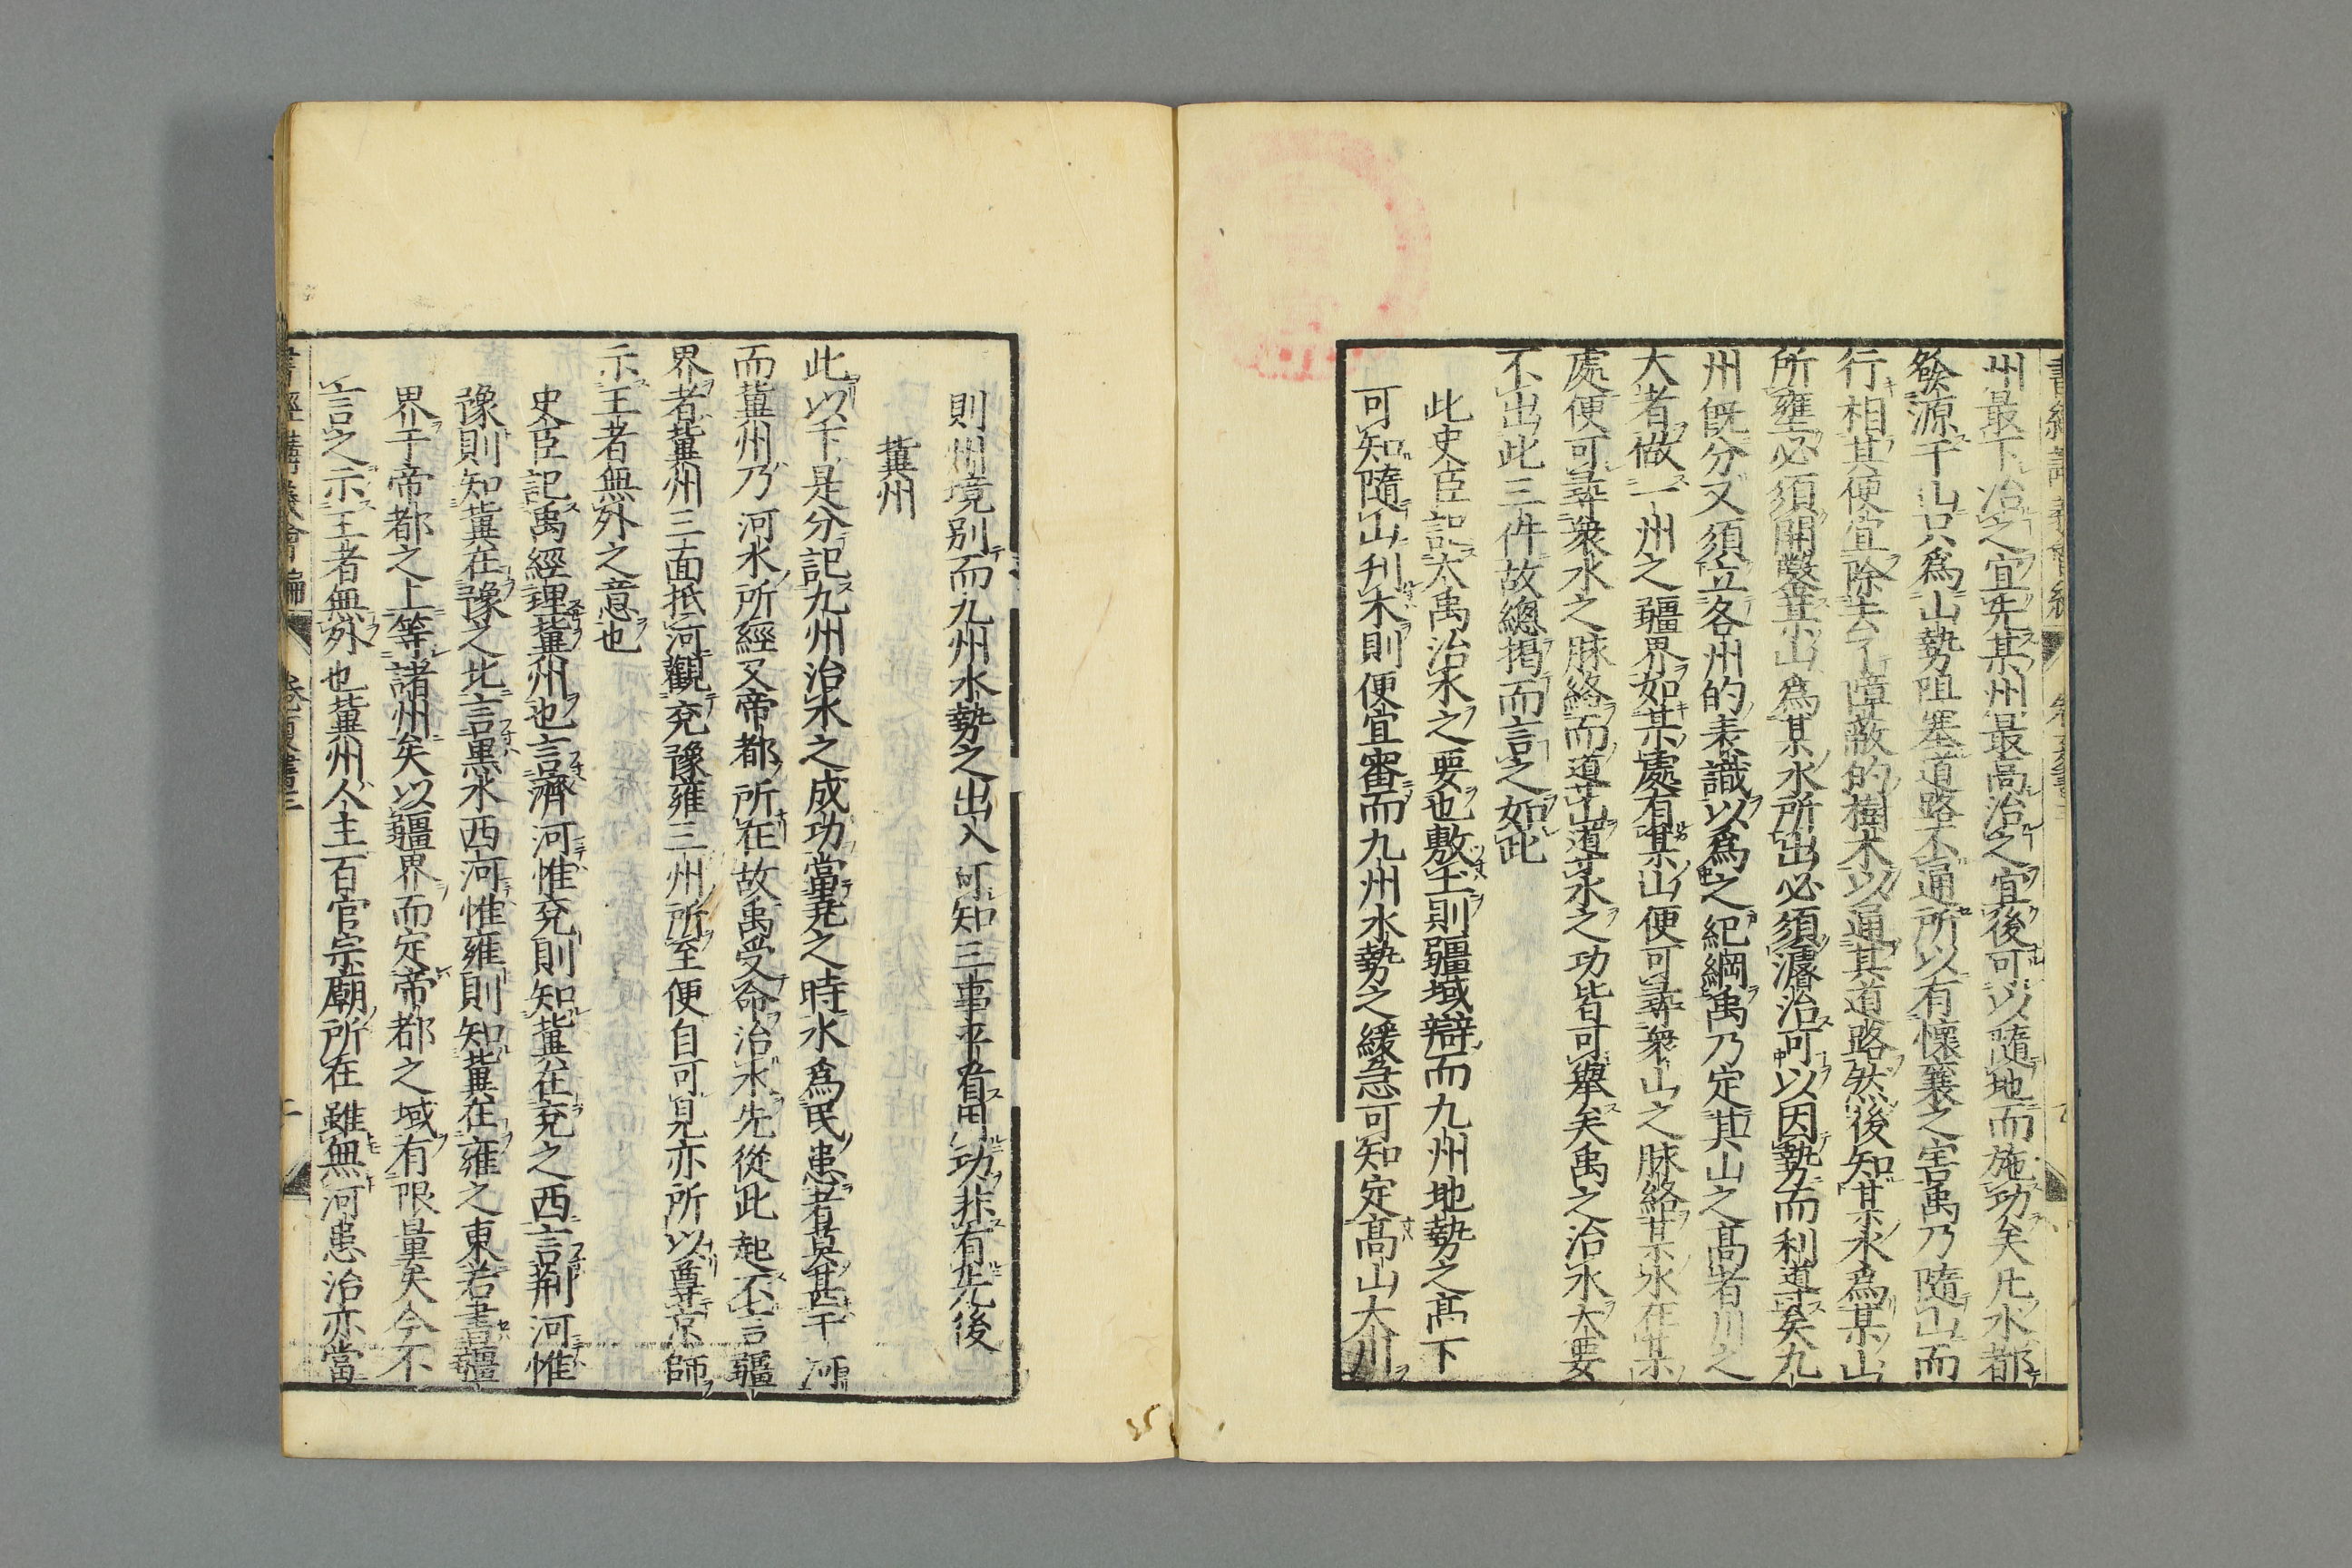 州最下治之宜先某州最高治之宜後可以隨地而施功矣凡水都
發源于山只為山勢阻塞道路不通所以有懷襄之害禹乃隨山而
行相其便宜除去了障蔽的樹木以通其道路然後知某水為某山
所壅必須開鑿某山為某水所出必須濬治可以因勢而利導矣九
州既分又須立各州的表識以為之紀綱禹乃定其山之高者川之
大者做一州之疆界如某處有某山便可尋衆山之脉絡某水在某
處便可尋衆水之脉絡而道山道水之功皆可舉矣禹之治水大要
不出此三件故總揭而言之如此
此史臣記大禹治水之要也敷土則疆域辯而九州地勢之高下
可知隨山刋木則便宜審而九州水勢之緩急可知定高山大川
則州境别而九州水勢之出入可知三事平看用功非有先後
冀州
此以下是分記九州治水之成功當堯之時水為民患者莫甚于河
而冀州乃河水所經又帝都所在故禹受命治水先從此起不言疆
界者冀州三面抵河觀兗豫雍三州所至便自可見亦所以尊京師
示王者無外之意也
史臣記禹經理冀州也言濟河惟兗則知冀在兗之西言荆河惟
豫則知冀在豫之北言黒水西河惟雍則知冀在雍之東若書疆
界于帝都之上等諸州矣以疆界而定帝都之域有限量矣今不
言之示王者無外也冀州人主百官宗廟所在雖無河患治亦當
書經講義會編 卷三夏書